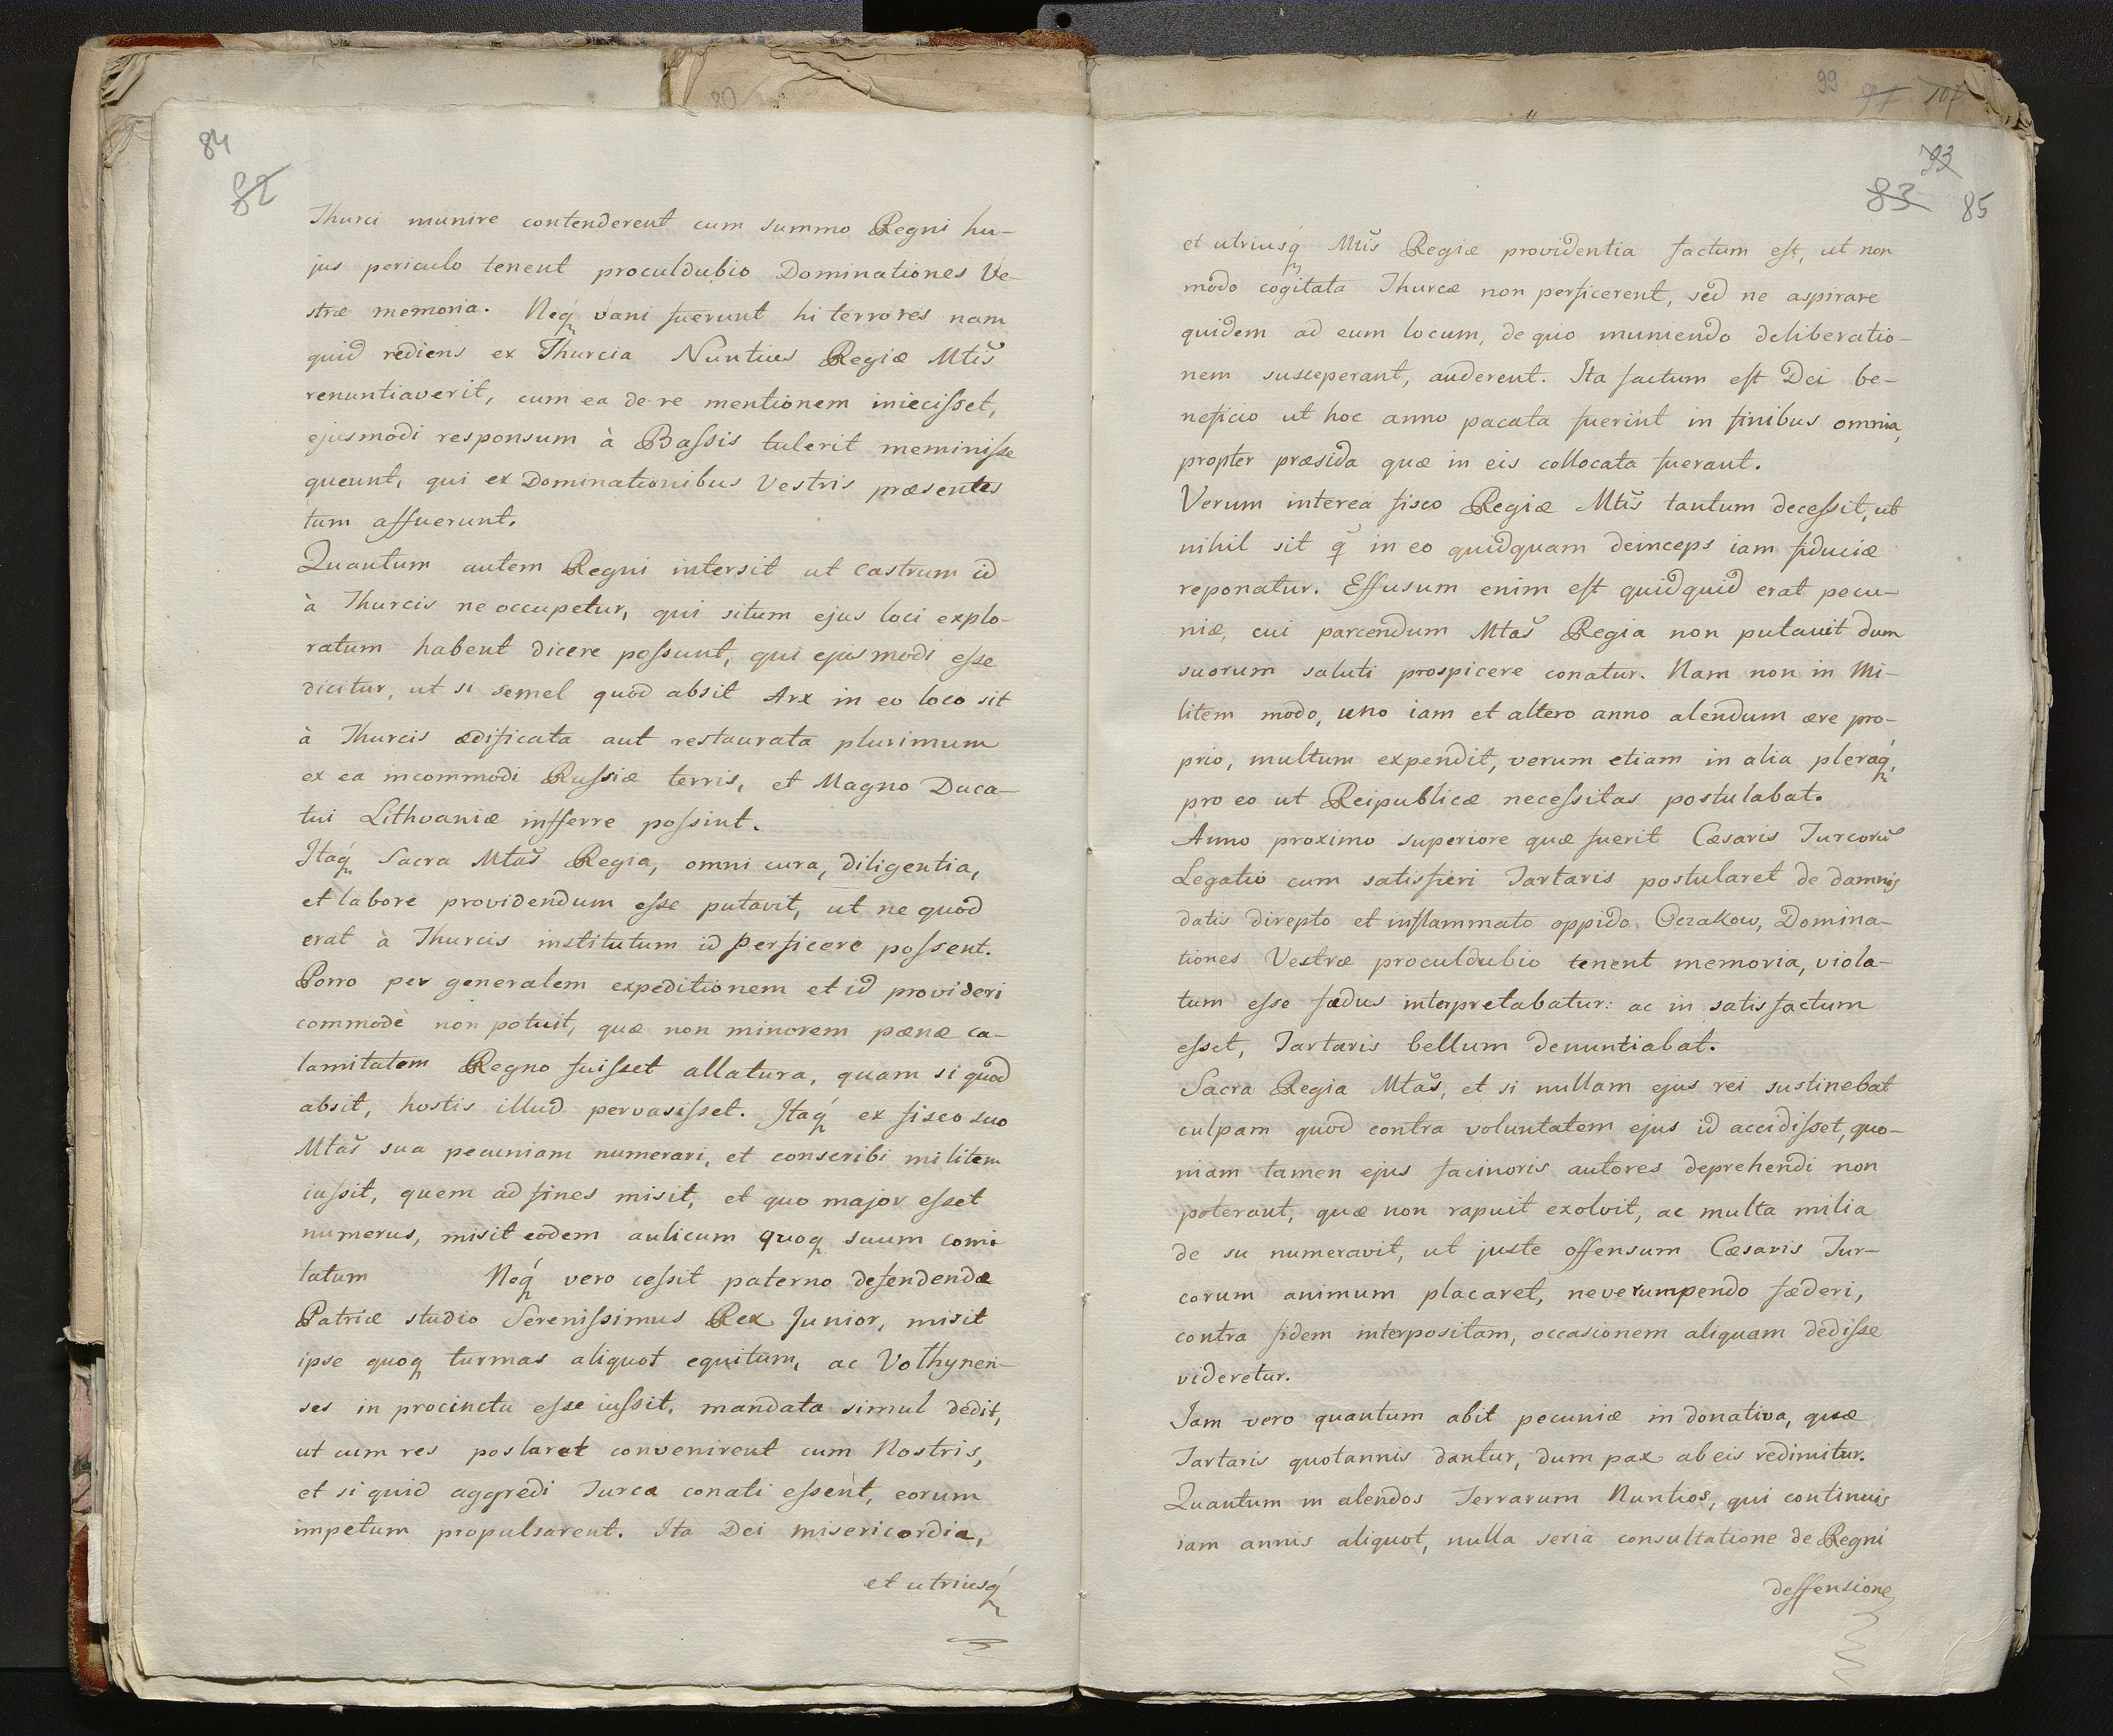 80
84
82
Thurci munire contenderent cum summo Regni hu-
jus periculo tenent proculdubio Dominationes Ve-
stræ memoria. Neq́ vani fuerunt hi terrores nam
quid rediens ex Thurcia Nuntius Regiæ Mtis̃
renuntiaverit, cum ea de re mentionem iniecisset,
ejusmodi responsum à Bassis tulerit meminisse
queunt, qui ex Dominationibus Vestris præsentes
tum affuerunt.
Quantum autem Regni intersit ut castrum id
à Thurcis ne occupetur, qui situm ejus loci explo-
ratum habent dicere possunt, qui ejusmodi esse
dicitur, ut si semel quod absit Arx in eo loco sit
à Thurcis ædificata aut restaurata plurimum
ex ea incommodi Russiæ terris, et Magno Duca-
tui Lithvaniæ infferre possint.
Itaq́ Sacra Mtas̃ Regia, omni cura, diligentia,
et labore providendum esse putavit, ut ne quod
erat à Thurcis institutum id perficere possent.
Porro per generalem expeditionem et id provideri
commodè non potuit, quæ non minorem pænæ ca-
lamitatem Regno fuisset allatura, quam si quod
absit, hostis illud pervasisset. Itaq́ ex fisco suo
Mtas̃ sua pecuniam numerari, et conscribi militem
iussit, quem ad fines misit, et quo major esset
numerus, misit eodem aulicum quoq suum comi
tatum Neq́ vero cessit paterno defendendæ
Patriæ studio Serenissimus Rex Junior, misit
ipse quoq turmas aliquot equitum, ac Volhynen-
ses in procinctu esse iussit, mandata simul dedit,
ut cum res poslaret convenirent cum Nostris,
et si quid aggredi Turca conati essent, eorum
impetum propulsarent. Ita Dei misericordia,
et utriusq́
99 97 107
93
83 85
et utriusq́ Mtis̃ Regiæ providentia factum est, ut non
modo cogitata Thurcæ non perficerent, sed ne aspirare
quidem ad eum locum, de quo muniendo deliberatio-
nem susceperant, auderent. Ita factum est Dei be-
neficio ut hoc anno pacata fuerint in finibus omnia,
propter præsida quæ in eis collocata fuerant.
Verum interea fisco Regiæ Mtis̃ tantum decessit, ut
nihil sit q̃ in eo quidquam deinceps iam fiduciæ
reponatur. Effusum enim est quidquid erat pecu-
niæ, cui parcendum Mtas̃ Regia non putauit dum
suorum saluti prospicere conatur. Nam non in Mi-
litem modo, uno iam et altero anno alendum ære pro-
prio, multum expendit, verum etiam in alia pleraq́,
pro eo ut Reipublicæ necessitas postulabat.
Anno proximo superiore quæ fuerit Cæsaris Turcorũ
Legatio cum satisfieri Tartaris postularet de damnis
datis direpto et inflammato oppido Oczakow, Domina-
tiones Vestræ proculdubio tenent memoria, viola-
tum esse fædus interpretabatur: ac in satisfactum
esset, Tartaris bellum denuntiabat.
Sacra Regia Mtas̃, et si nullam ejus rei sustinebat
culpam quod contra voluntatem ejus id accidisset, quo-
niam tamen ejus facinoris autores deprehendi non
poterant, quæ non rapuit exolvit, ac multa milia
de su numeravit, ut juste offensum Cæsaris Tur-
corum animum placaret, neve rumpendo fæderi,
contra fidem interpositam, occasionem aliquam dedisse
videretur.
Jam vero quantum abit pecuniæ in donativa, quæ
Tartaris quotannis dantur, dum pax ab eis redimitur.
Quantum in alendos Terrarum Nuntios, qui continuis
iam annis aliquot, nulla seria consultatione de Regni
deffensione